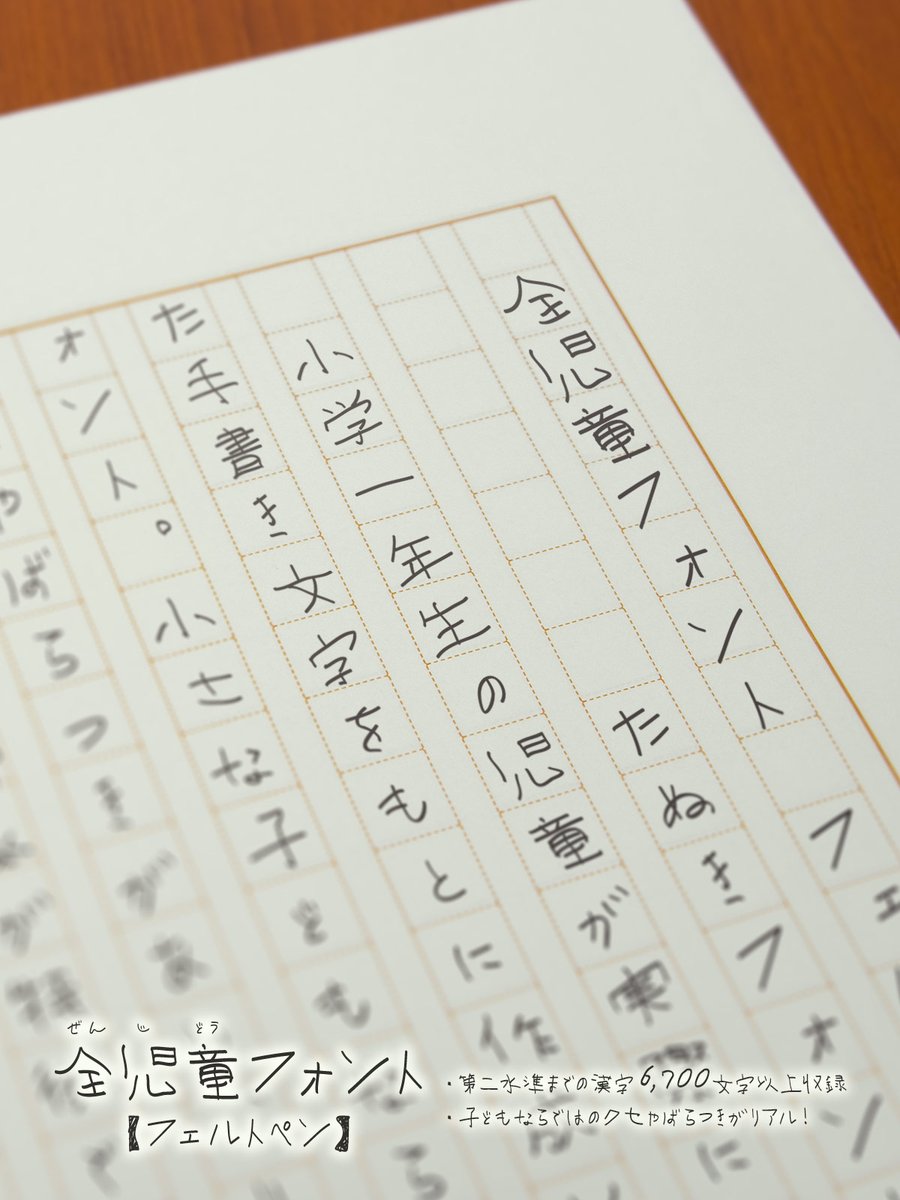 全児童フォント　フェ
たぬきフォン
小学一年生の児童が実際に
た手書き文字をもとに作
ォント。小さな子どもなら
やばらつきが
ぜんじどう
全児童フォント
【フェルトペン】
・第二水準までの漢字6,700文字以上収録
・子どもならではのクセやばらつきがリアル！